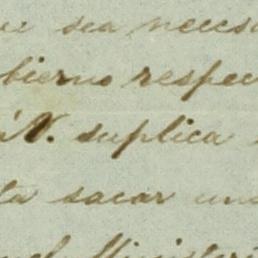 sea neces
bierno respec
á V. suplica
ta sacar un
el Ministeri